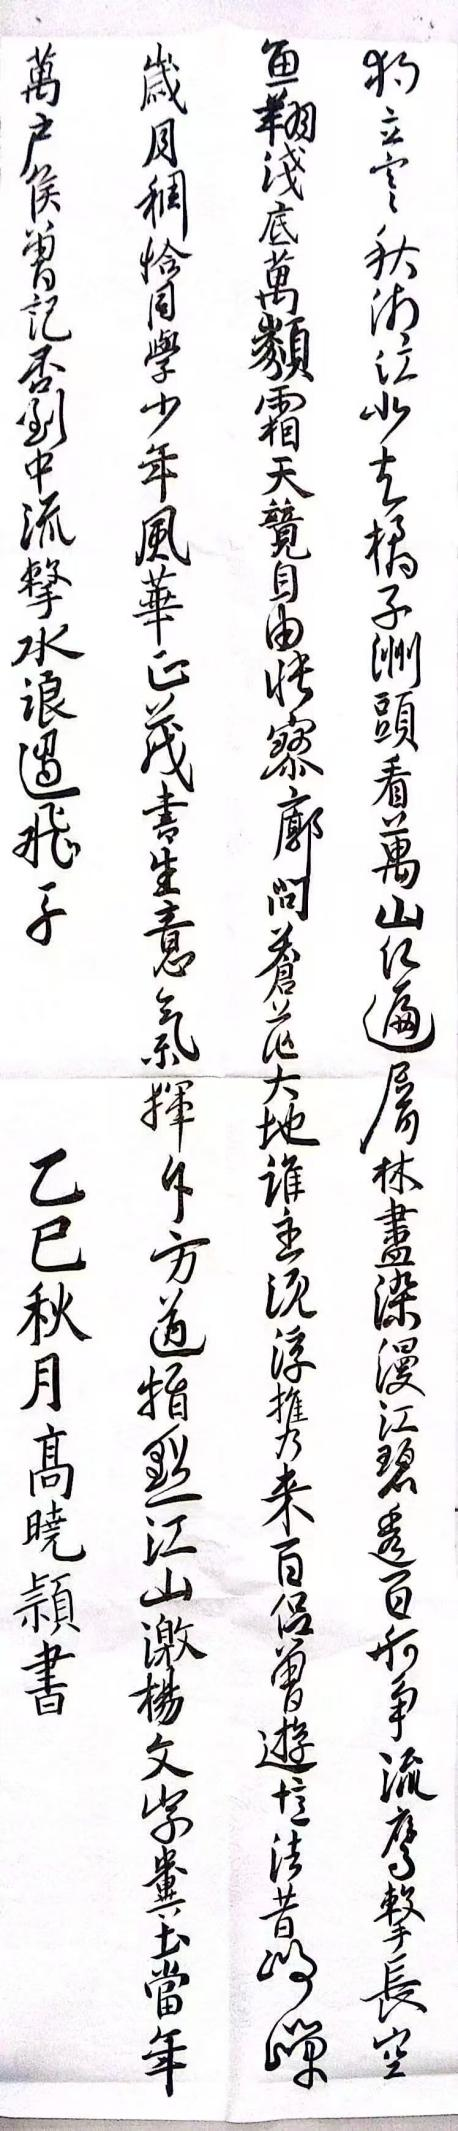 獨立寒秋湘江北去橘子洲頭看萬山红遍層林盡染漫江碧透百舸争流鹰擊長空
魚翔浅底萬類霜天競自由悵寥廓問蒼茫大地誰主沉浮携乃来百侣曾遊憶往昔崢嶸
歲月稠恰同學少年風華正茂書生意氣揮斥方遒指點江山激楊文字糞土當年
萬户侯曾記否到中流擊水浪遏飛子
乙巳秋月高曉穎書